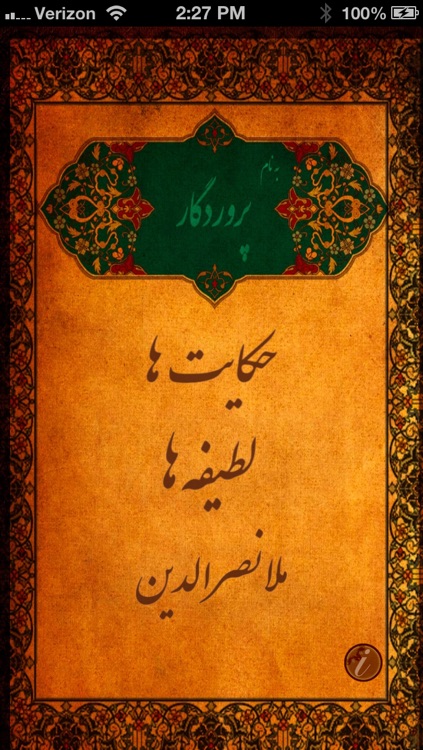 Verizon 2:27 PM 100%
به نام
پروردگار
حکایت ها
لطیفه ها
ملا نصرالدین
i